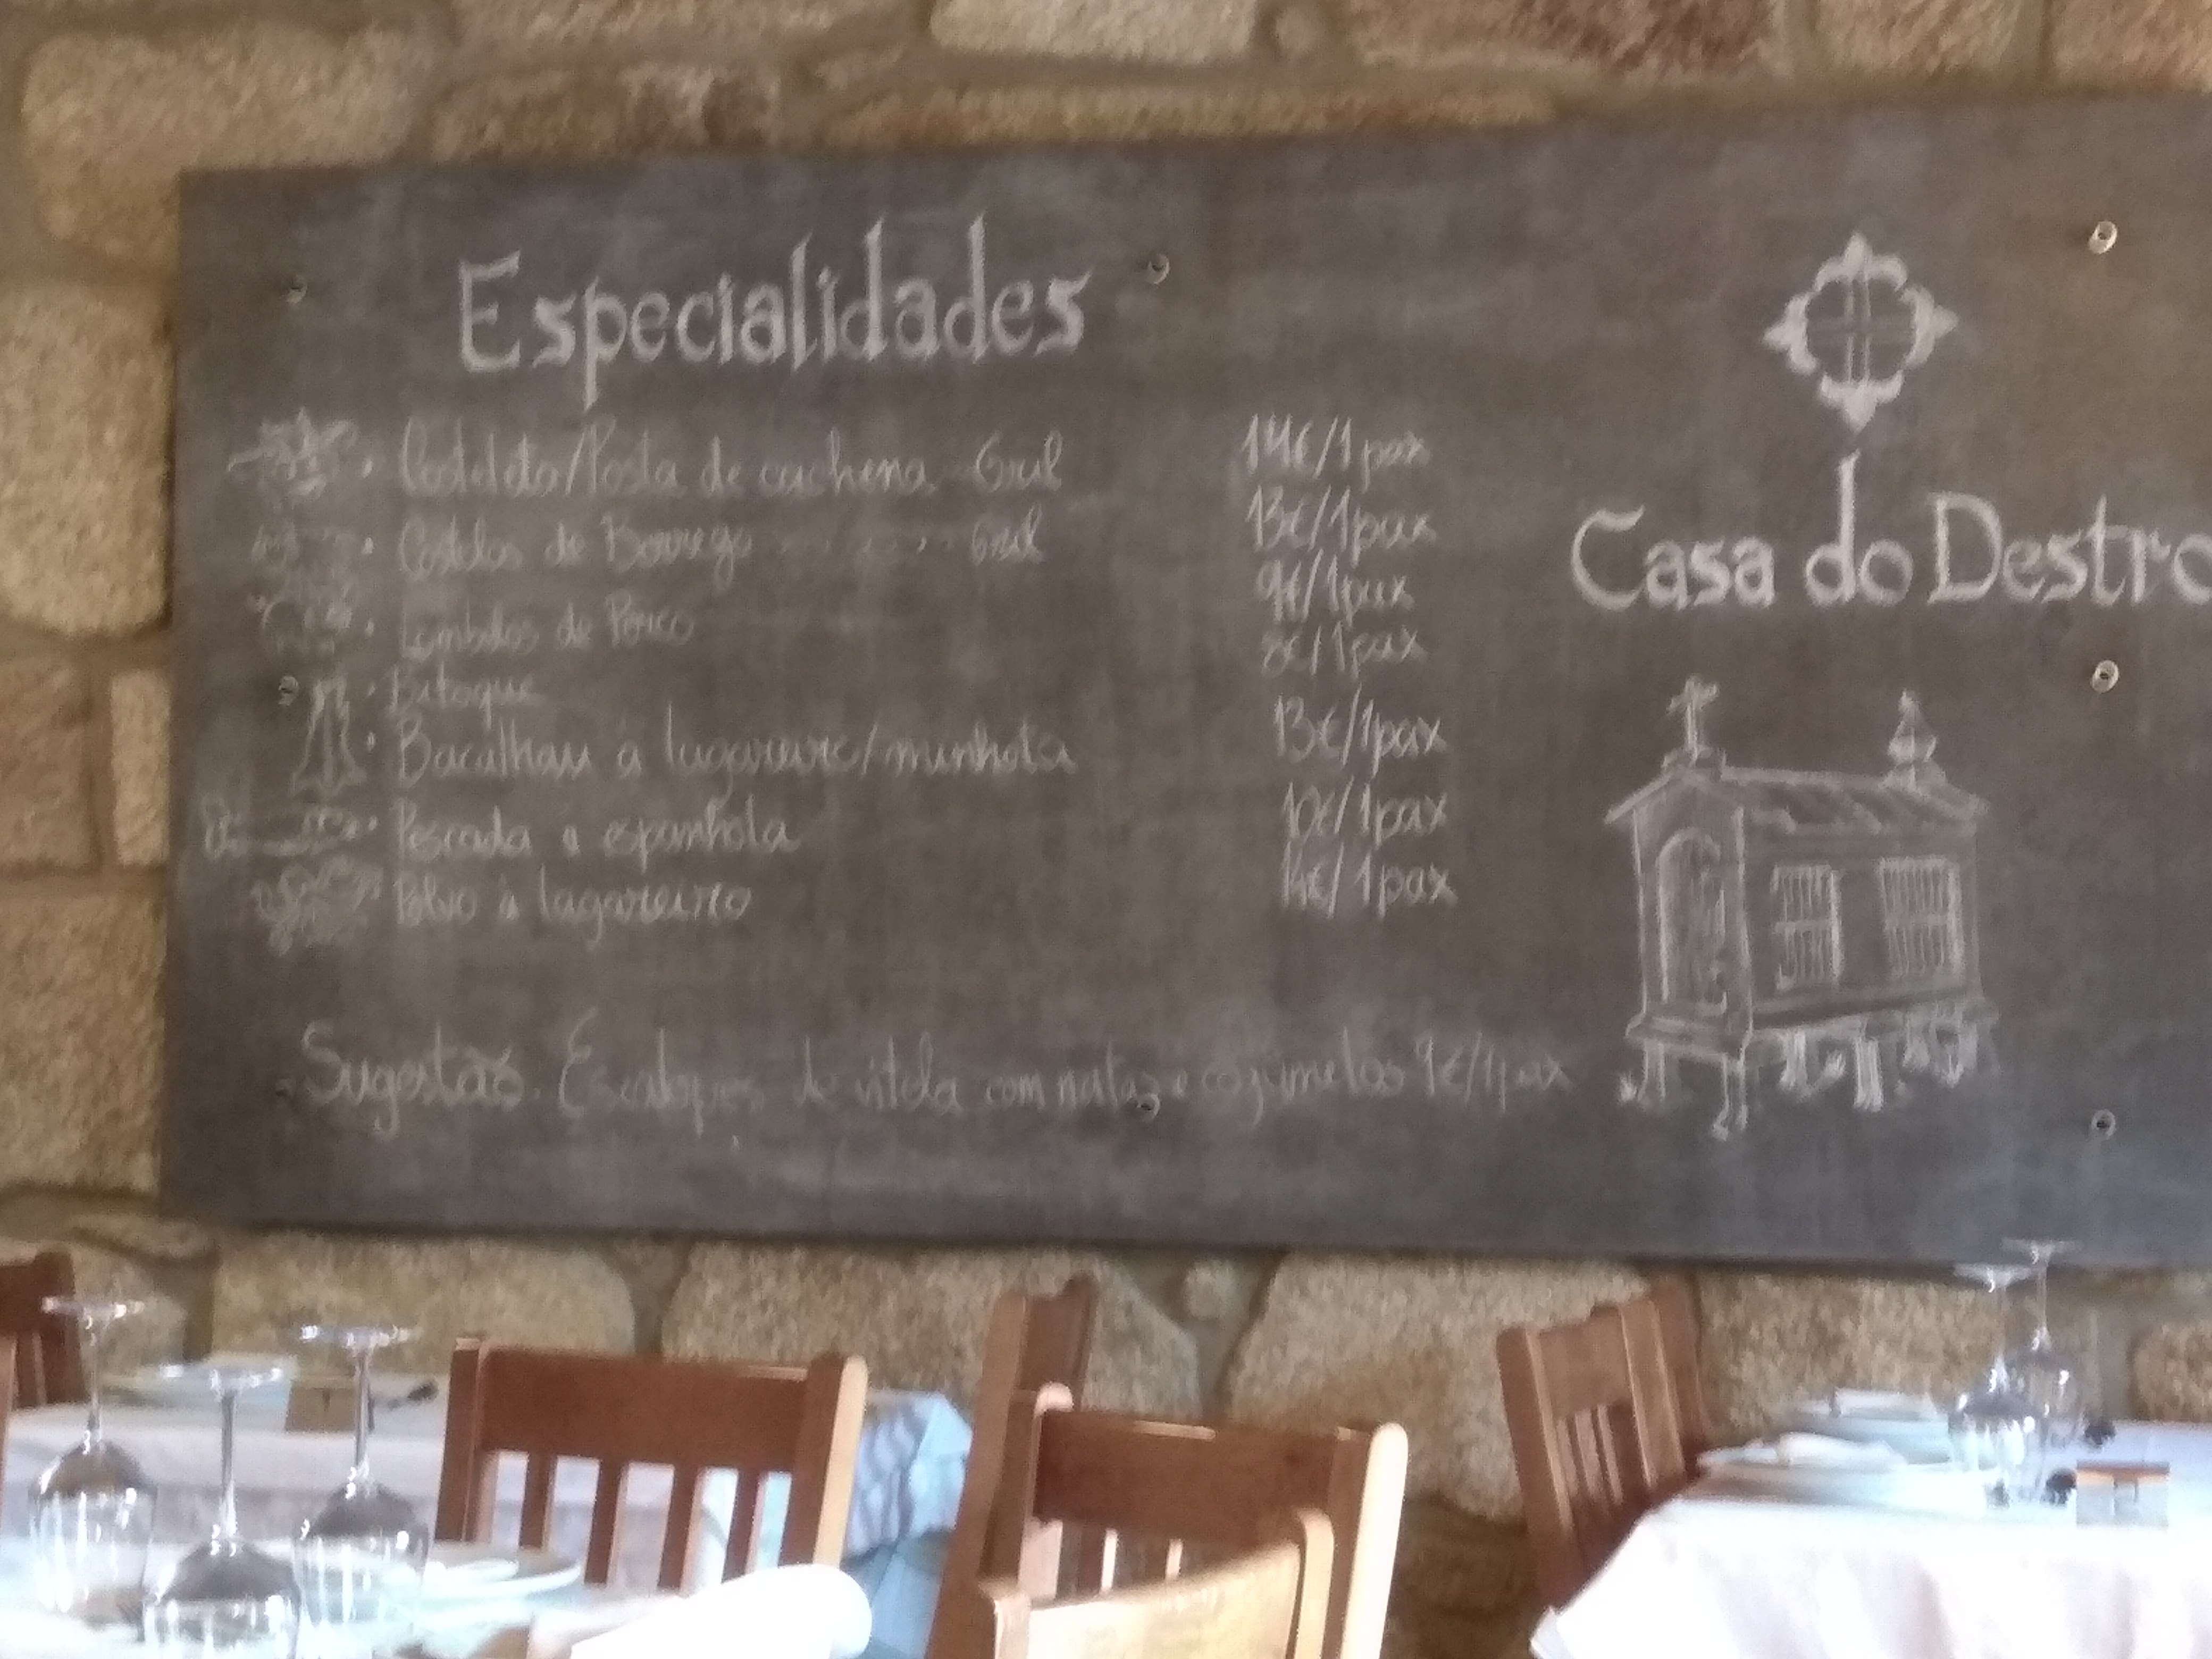 Especialidades
· Costeleta/Posta de cachena - Gril 14€/1pax
· Costelas de Borrego Gril 13€/1pax
· Lombelos de Porco 9€/1pax
· Bitoque 8€/1pax
· Bacalhau a lagareiro/minhota 13€/1pax
· Pescada a espanhola 10€/1pax
· Polvo à lagareiro 14€/1pax
Sugestão. Escalopes de vitela com natas e cogumelos 9€/1pax
Casa do Destro